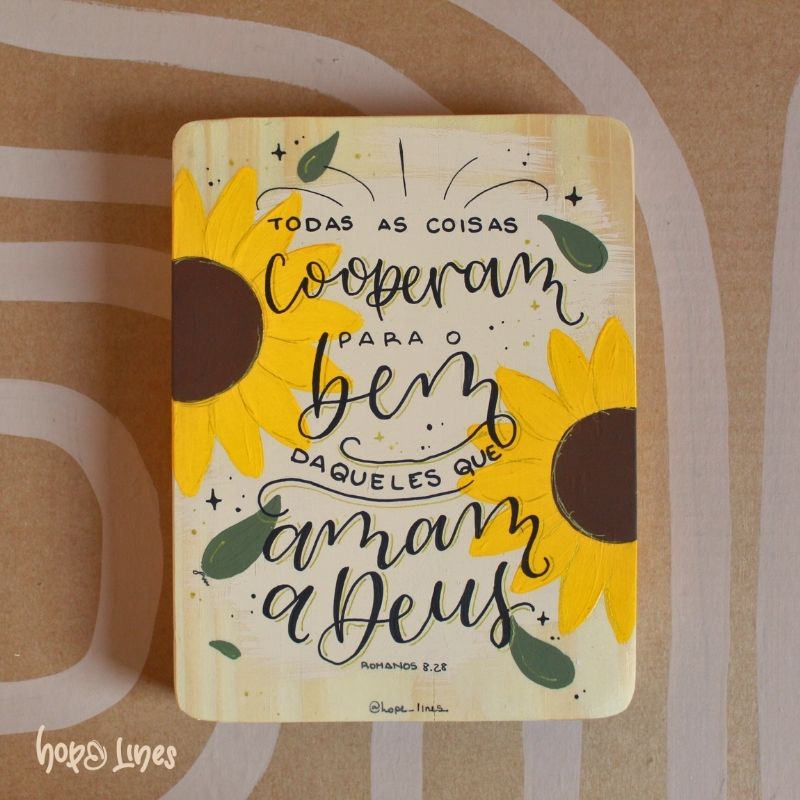 TODAS AS COISAS
Cooperam
PARA O
bem
DAQUELES QUE
amam
a Deus
ROMANOS 8.28
@hope_lines
hope Lines